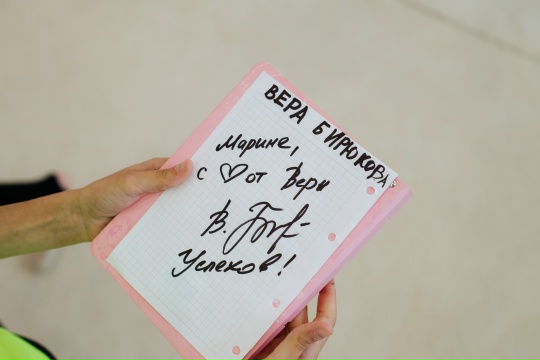 ВЕРА БИРЮКОВА
Марине,
с ♡ от Веры
В. Бир
Успехов!